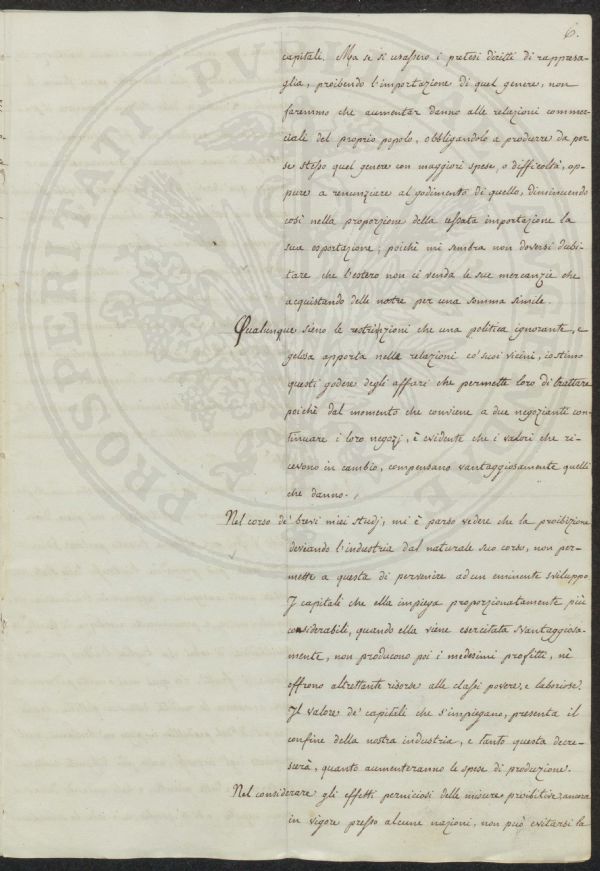 6.
capitali. Ma se si usassero i pretesi diritti di rappresa-
glia, proibendo l'importazione di quel genere, non
faremmo che aumentar danno alle relazioni commer-
ciali del proprio popolo, obbligandolo a produrre da per
se stesso quel genere con maggiori spese, o difficoltà, op-
pure a renunziare al godimento di quello, diminuendo
così nella proporzione della cessata importazione la
sua esportazione; poichè mi sembra non doversi dubi-
tare che l'estero non ci venda le sue mercanzie che
acquistando delle nostre per una somma simile.
Qualunque sieno le restrinzioni che una politica ignorante, e
gelosa apporta nelle relazioni co' suoi vicini, costimo
questi godere degli affari che permette loro di trattare
poichè dal momento che conviene a due negozianti con-
tinuare i loro negozj, è evidente che i valori che ri-
cevono in cambio, compensano vantaggiosamente quelli
che danno.
Nel corso de' brevi miei studj, mi è parso vedere che la proibizione
deviando l'industria dal naturale suo corso, non per-
mette a questa di pervenire ad un eminente sviluppo.
I capitali che ella impiega proporzionatamente più
considerabili, quando ella viene esercitata svantaggiosa-
mente, non producono poi i medesimi profitti, nè
offrono altrettante risorse alle classi povere, e laboriose.
Il valore de' capitali che s'impiegano, presenta il
confine della nostra industria, e tanto questa decre-
scerà, quanto aumenteranno le spese di produzione.
Nel considerare gli effetti perniciosi delle misure proibitive ancora
in vigore presso alcune nazioni, non può evitarsi la
PROSPERITATI PUBL